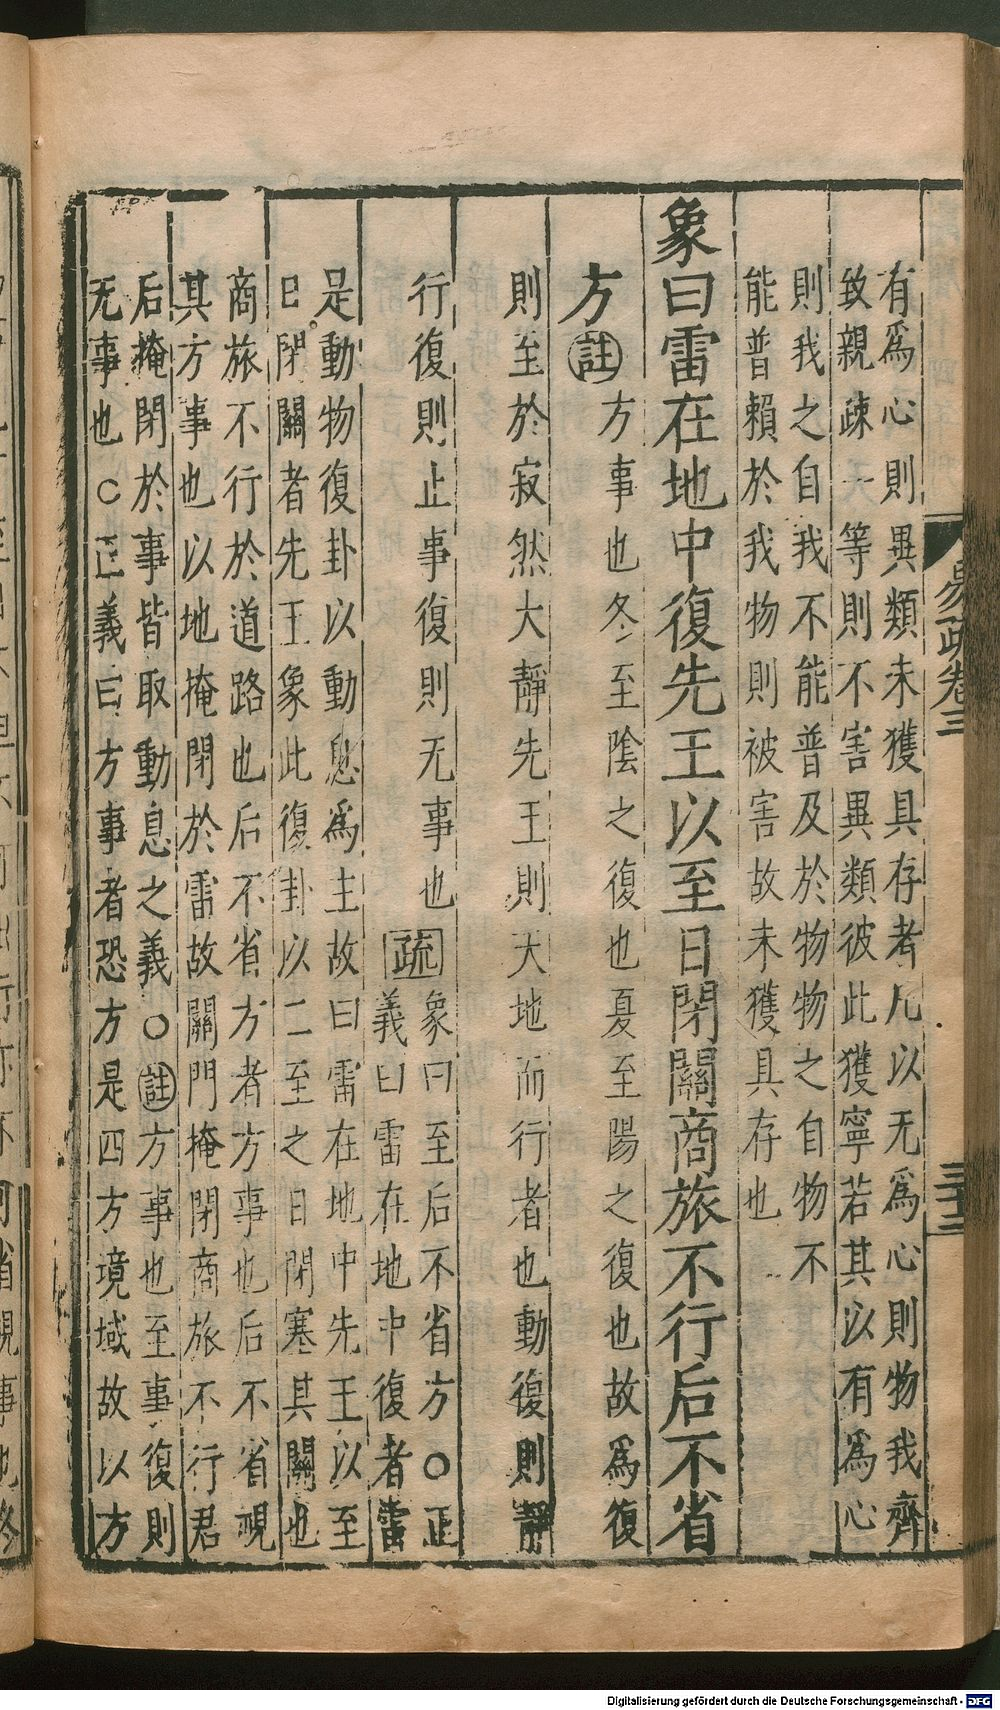 易疏卷三
三十三
有爲心則異類未獲具存者凡以无爲心則物我齊
致親疎一等則不害異類彼此獲寧若其以有爲心
則我之自我不能普及於物物之自物不
能普賴於我物則被害故未獲具存也
象曰雷在地中復先王以至日閉關商旅不行后不省
方註方事也冬至陰之復也夏至陽之復也故爲復
則至於寂然大靜先王則天地而行者也動復則靜
行復則止事復則无事也疏象曰至后不省方○正
義曰雷在地中復者雷
是動物復卦以動息爲主故曰雷在地中先王以至
日閉關者先王象此復卦以二至之日閉塞其關也
商旅不行於道路也后不省方者方事也后不省視
其方事也以地掩閉於雷故關門掩閉商旅不行君
后掩閉於事皆取動息之義○註方事也至事復則
无事也○正義曰方事者恐方是四方境域故以方
Digitalisierung gefördert durch die Deutsche Forschungsgemeinschaft - DFG